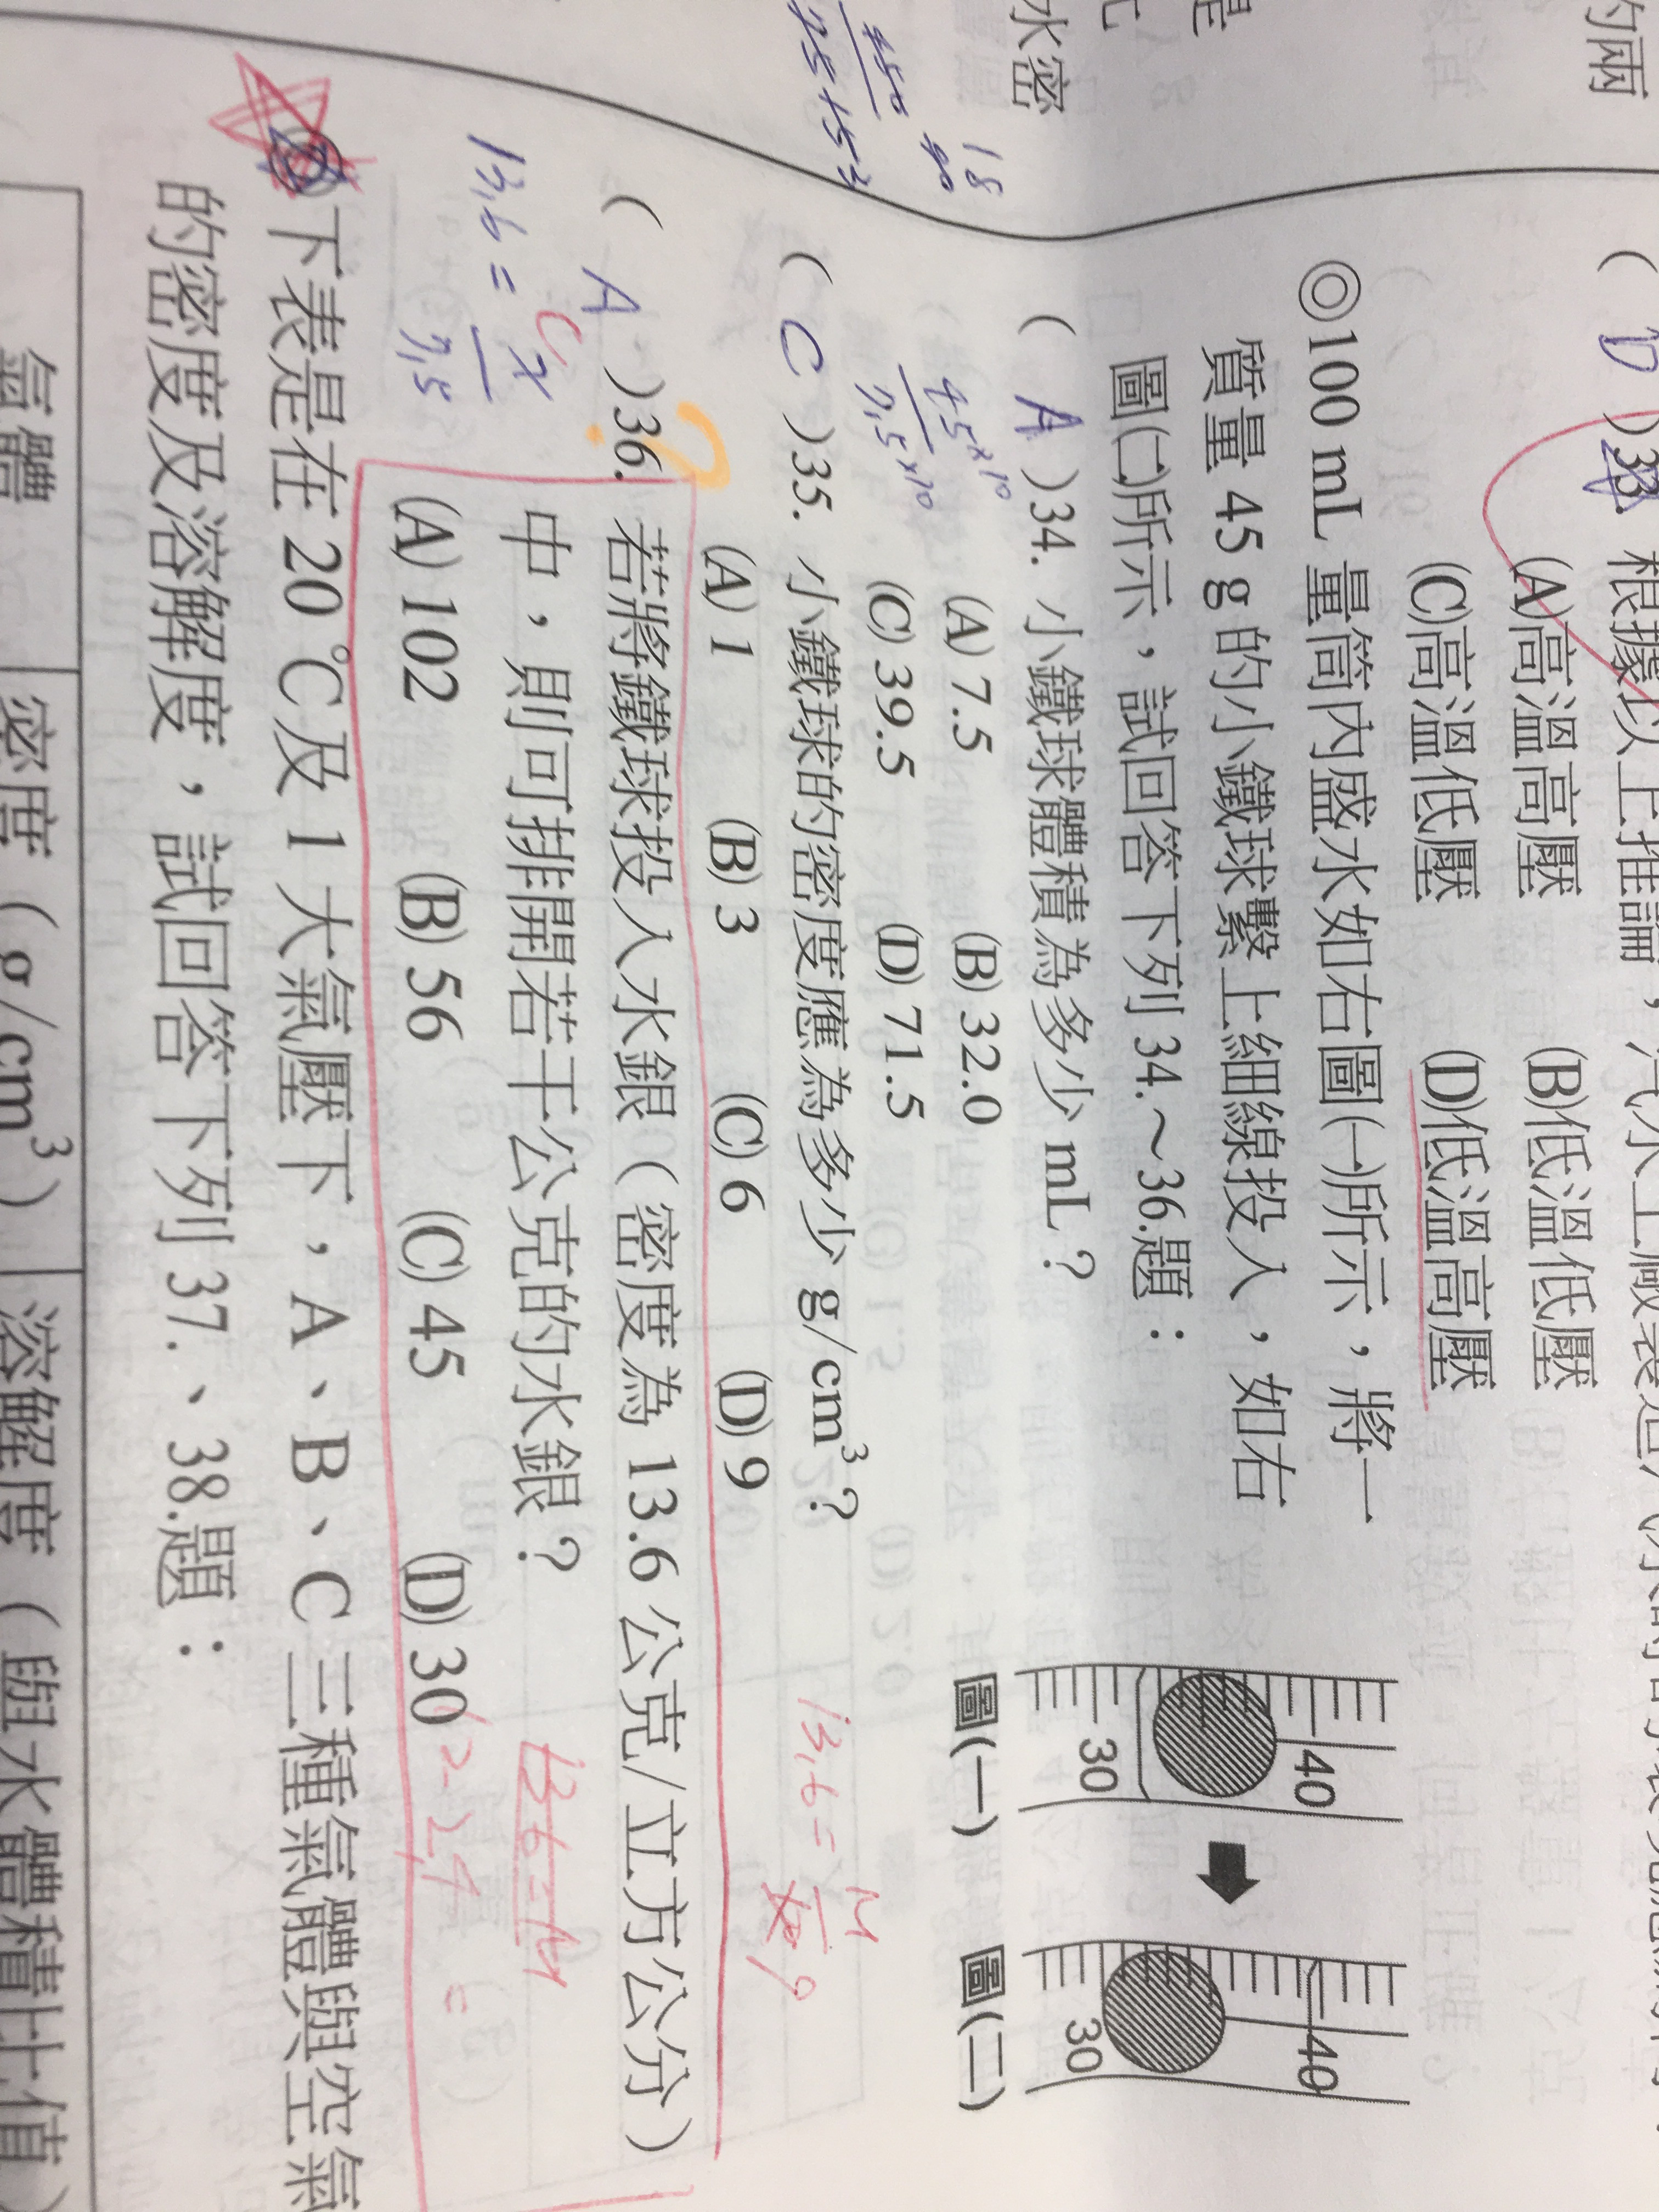 的兩
是
水密
( D )33. 根據以上推論，
(A)高溫高壓 (B)低溫低壓
(C)高溫低壓 (D)低溫高壓
◎100 mL 量筒內盛水如右圖(一)所示，將一
質量 45 g 的小鐵球繫上細線投入，如右
圖(二)所示，試回答下列 34.～36.題：
( A )34. 小鐵球體積為多少 mL？
(A) 7.5 (B) 32.0
(C) 39.5 (D) 71.5
( C )35. 小鐵球的密度應為多少 g/cm³？
(A) 1 (B) 3 (C) 6 (D) 9
( A )36. 若將鐵球投入水銀（密度為 13.6 公克/立方公分）
中，則可排開若干公克的水銀？
(A) 102 (B) 56 (C) 45 (D) 30
40
30
圖(一)
40
30
圖(二)
45×10
7.5×10
13.6 = x
7.5
C
?
13.6 = M
下表是在 20 ℃及 1 大氣壓下，A、B、C 三種氣體與空氣
的密度及溶解度，試回答下列 37.、38.題：
氣體 密度（g/cm³） 溶解度（與水體積比值）